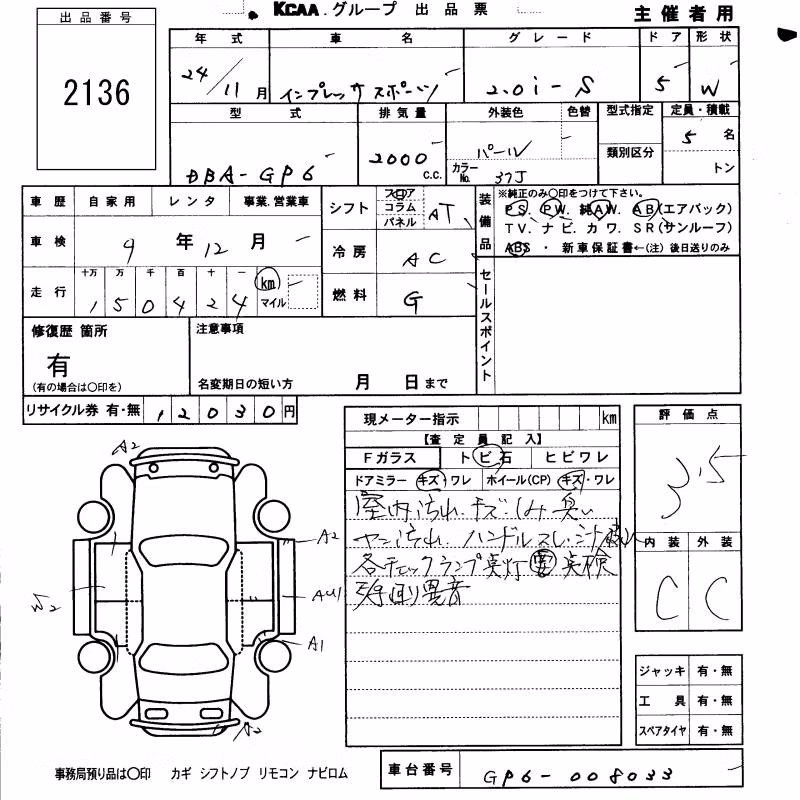 KCAA.グループ 出品票
主催者用
出品番号
2136
年式 車名 グレード ドア 形状
24/11月 インプレッサスポーツ 2.0i-S 5 W
型式 排気量 外装色 色替 型式指定 定員・積載
類別区分
DBA-GP6 2000 C.C. パール 5名
カラーNo. 37J トン
車歴 自家用 レンタ 事業.営業車
車検 9年12月
走行 十万 万 千 百 十 一
150424 km マイル
シフト フロア コラム パネル AT
冷房 AC
燃料 G
装備品
※純正のみ〇印をつけて下さい。
PS. PW. 純AW. AB(エアバッグ)
TV. ナビ. カワ. SR(サンルーフ)
ABS ・ 新車保証書←(注) 後日送りのみ
セールスポイント
修復歴 箇所
有
(有の場合は〇印を)
注意事項
名変期日の短い方 月 日まで
リサイクル券 有・無 12030円
現メーター指示 km
【査定員記入】
Fガラス トビ石 ヒビワレ
ドアミラー キズ・ワレ ホイール(CP) キズ・ワレ
室内汚れ.キズ.しみ.臭い
ヤニ汚れ.ハンドルスレ.
各チェックランプ点灯 要点検
異音
評価点
3.5
内装 外装
C C
ジャッキ 有・無
工具 有・無
スペアタイヤ 有・無
A2
A2
W2
AU1
A1
A2
事務局預り品は〇印 カギ シフトノブ リモコン ナビロム
車台番号 GP6-008033